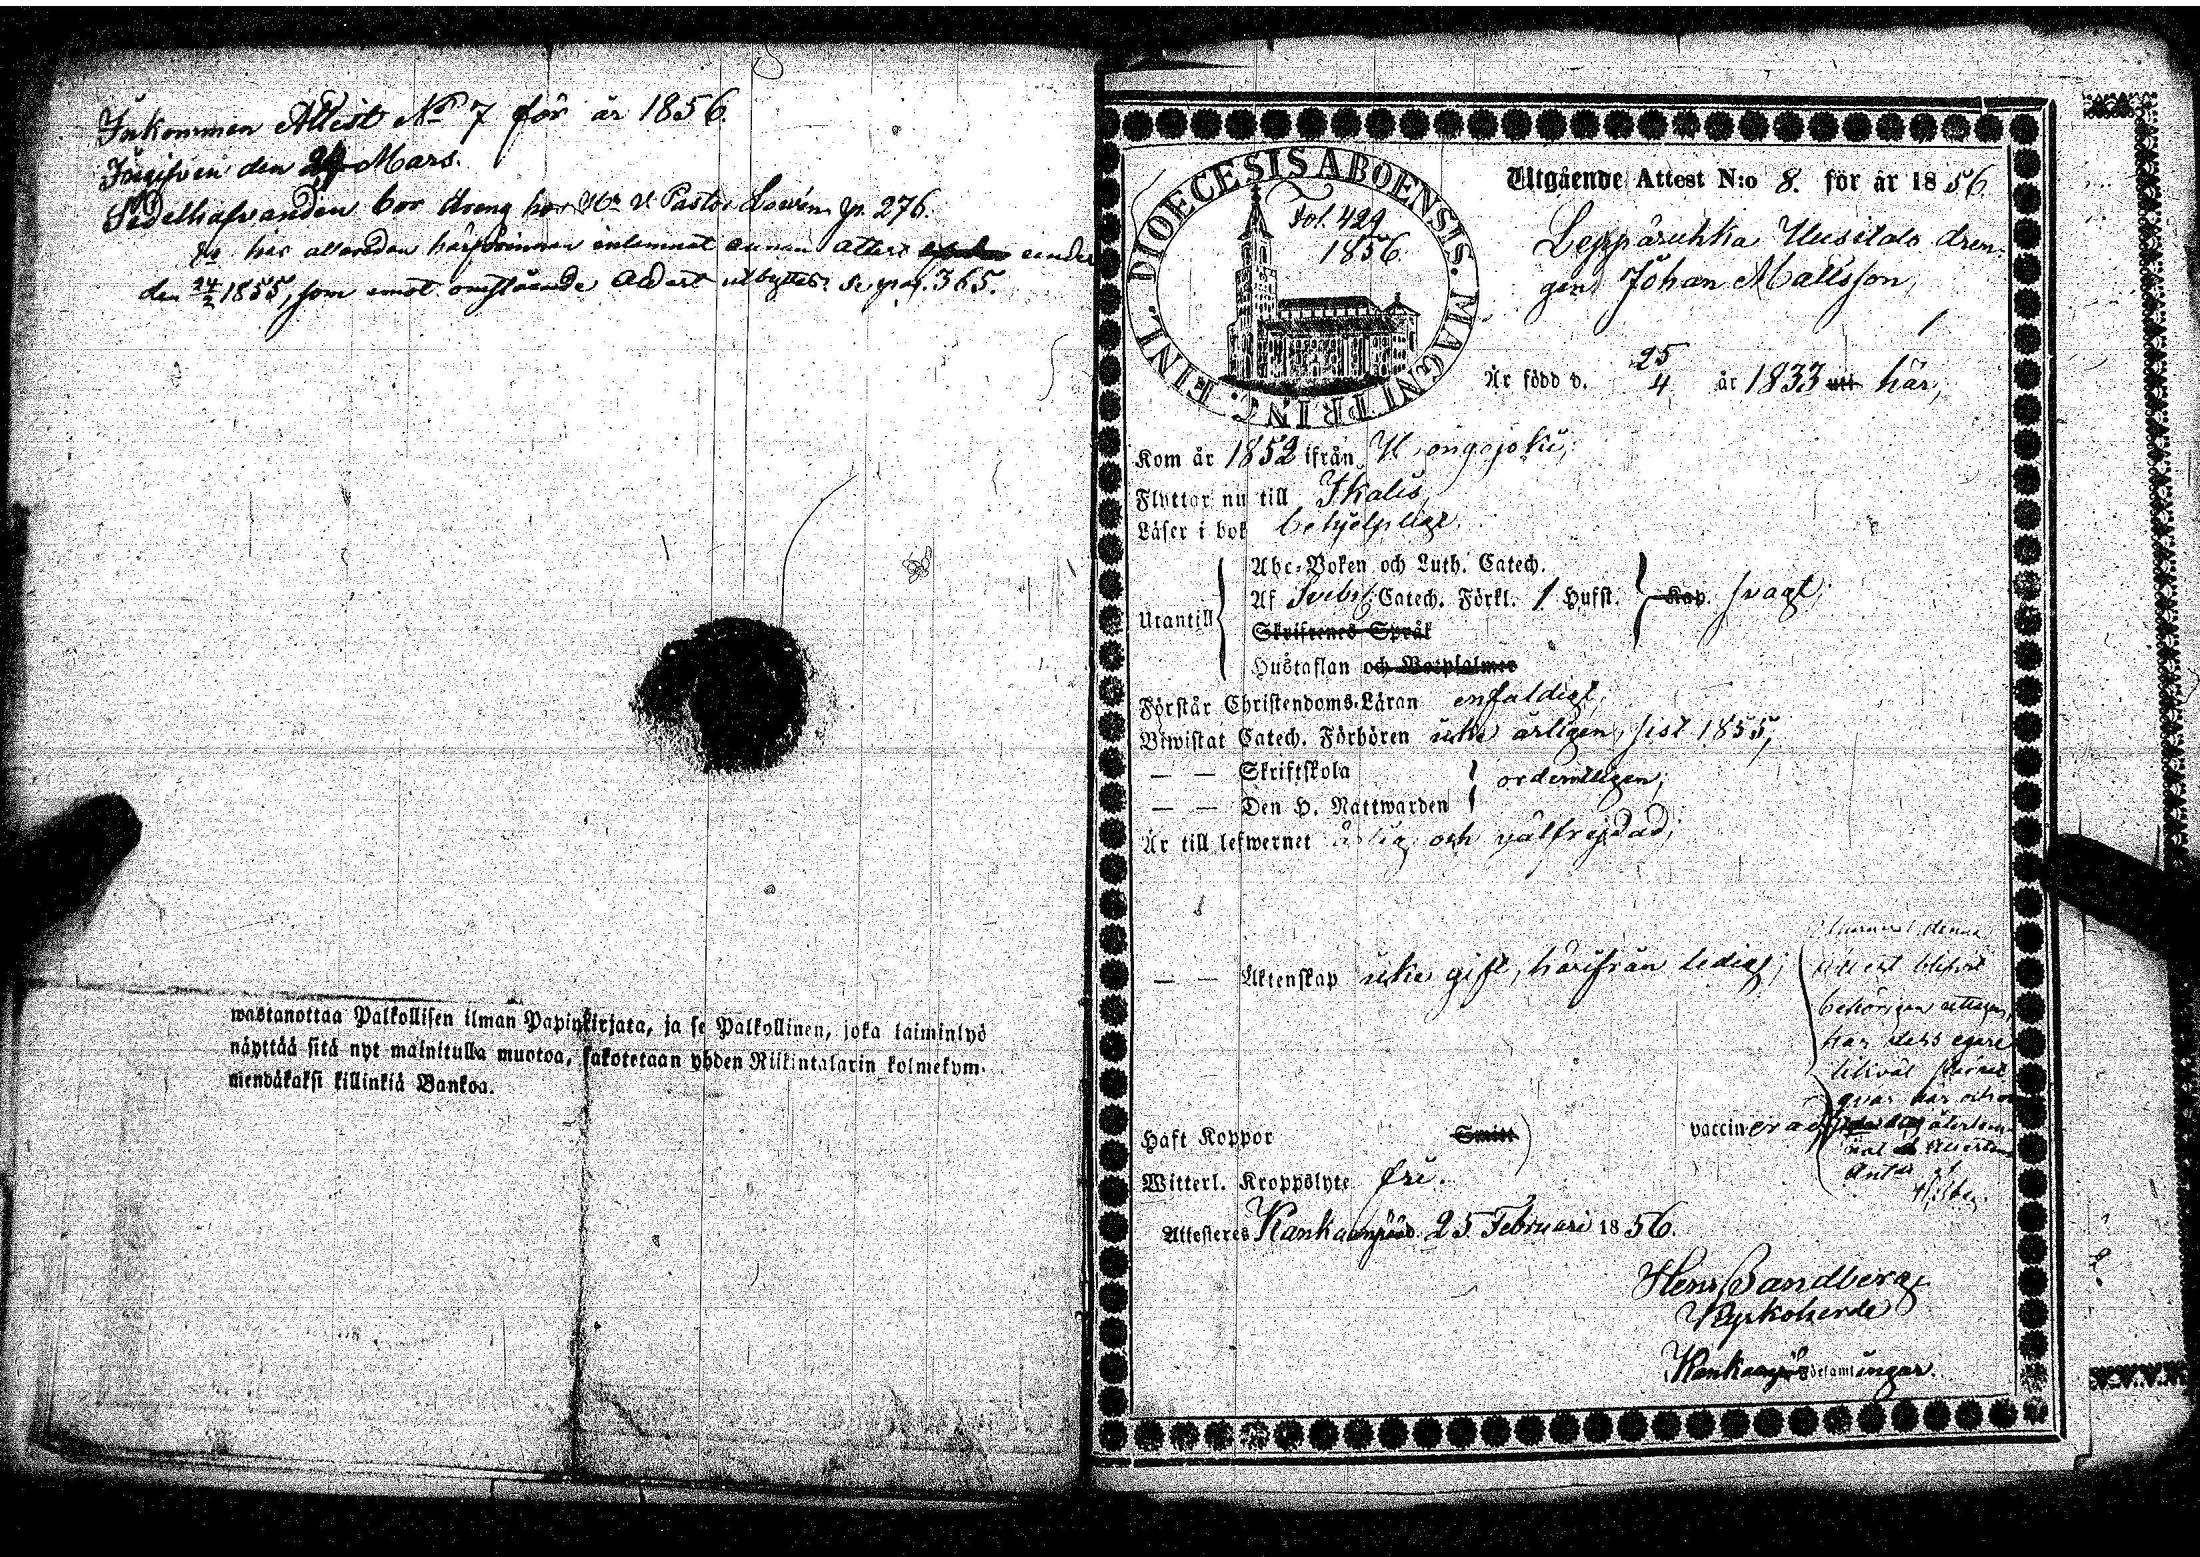 Inkommen Attest No 7 för år 1856.
Ingifven den 24 Mars.
Sedelhafvanden bor dreng hos V. Pastor p. 276.
har allaredan härförinnan inlemnat annan attest under
den 24/2 1855, som emot omstående utbyttes se pag. 365.
wastanottaa Palkollisen ilman Papinkirjata, ja se Palkollinen, joka laiminlyö
näyttää sitä nyt mainitulla muotoa, sakotetaan yhden Riikintalarin kolmekym-
mendäkaksi killinkiä Bankoa.
DIOECESIS ABOENSIS. MAGNI PRINC. FINL.
Fol. 429
1856
Utgående Attest N:o 8. för år 1856
Leppäruhka Uusitalo dren-
gen Johan Mattsson,
Är född d. 25/4 år 1833 här,
Kom år 1852 ifrån Hongojoki,
Flyttar nu till Ikalis,
Läser i bok behjelpligt.
Abc-Boken och Luth. Catech.
Utantill Af Svebil. Catech. Förkl. 1 Hufst. Kap. svagt,
Skriftenes Språk
Hustaflan och Botpsalmer
Förstår Christendoms-Läran enfaldigt,
Biwistat Catech. Förhören icke årligen, sist 1855,
— — Skriftskola
ordentligen,
— — Den H. Nattwarden
Är till lefwernet ärlig och välfrejdad,
— — Äktenskap icke gift, härifrån ledig;
denna
attest blifvit
behörigen uttagen,
har dess egare
likväl
qvar här och
Haft Koppor Smitt vaccinerad
Witterl. Kroppslyte fri.
Attesteras Kankaanpää d. 25 Februari 1856.
Henr. Sandberg
Kyrkoherde
Kankaanpää Församlingar.